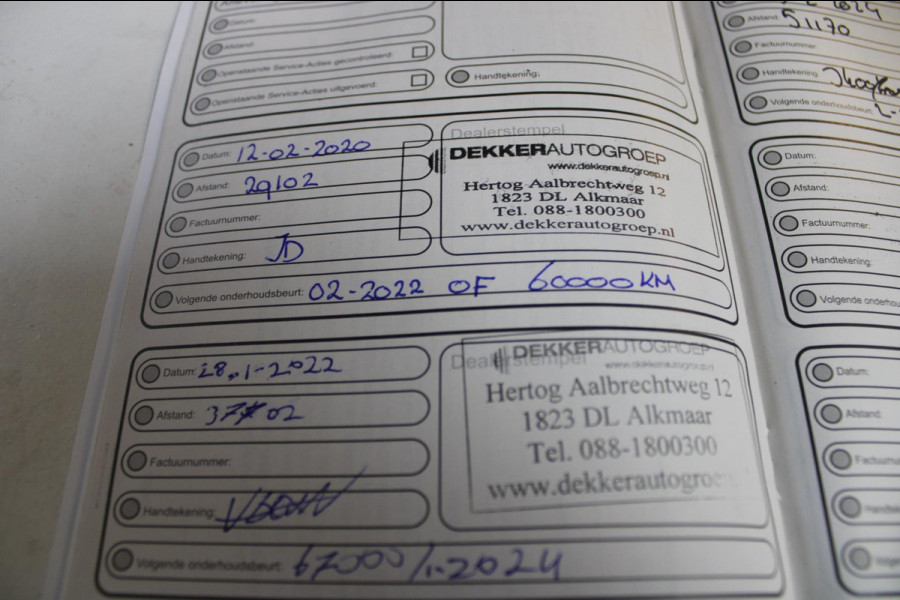 Datum:
Afstand:
Openstaande Service-Acties gecontroleerd:
Openstaande Service-Acties uitgevoerd:
Handtekening:
Datum: 12-02-2020
Afstand: 29102
Factuurnummer:
Handtekening: JD
Volgende onderhoudsbeurt: 02-2022 OF 60000KM
Dealerstempel
DEKKERAUTOGROEP
www.dekkerautogroep.nl
Hertog Aalbrechtweg 12
1823 DL Alkmaar
Tel. 088-1800300
www.dekkerautogroep.nl
Datum: 28.1-2022
Afstand:
Factuurnummer:
Handtekening:
Volgende onderhoudsbeurt: 67000/1-2024
Dealerstempel
DEKKERAUTOGROEP
www.dekkerautogroep.nl
Hertog Aalbrechtweg 12
1823 DL Alkmaar
Tel. 088-1800300
www.dekkerautogroe
2024
Afstand: 51170
Factuurnummer:
Handtekening:
Volgende onderhoudsbeurt:
Datum:
Afstand:
Factuurnummer:
Handtekening:
Volgende onderhou
Datum:
Afstand:
Factuurnu
Handteken
Volgende